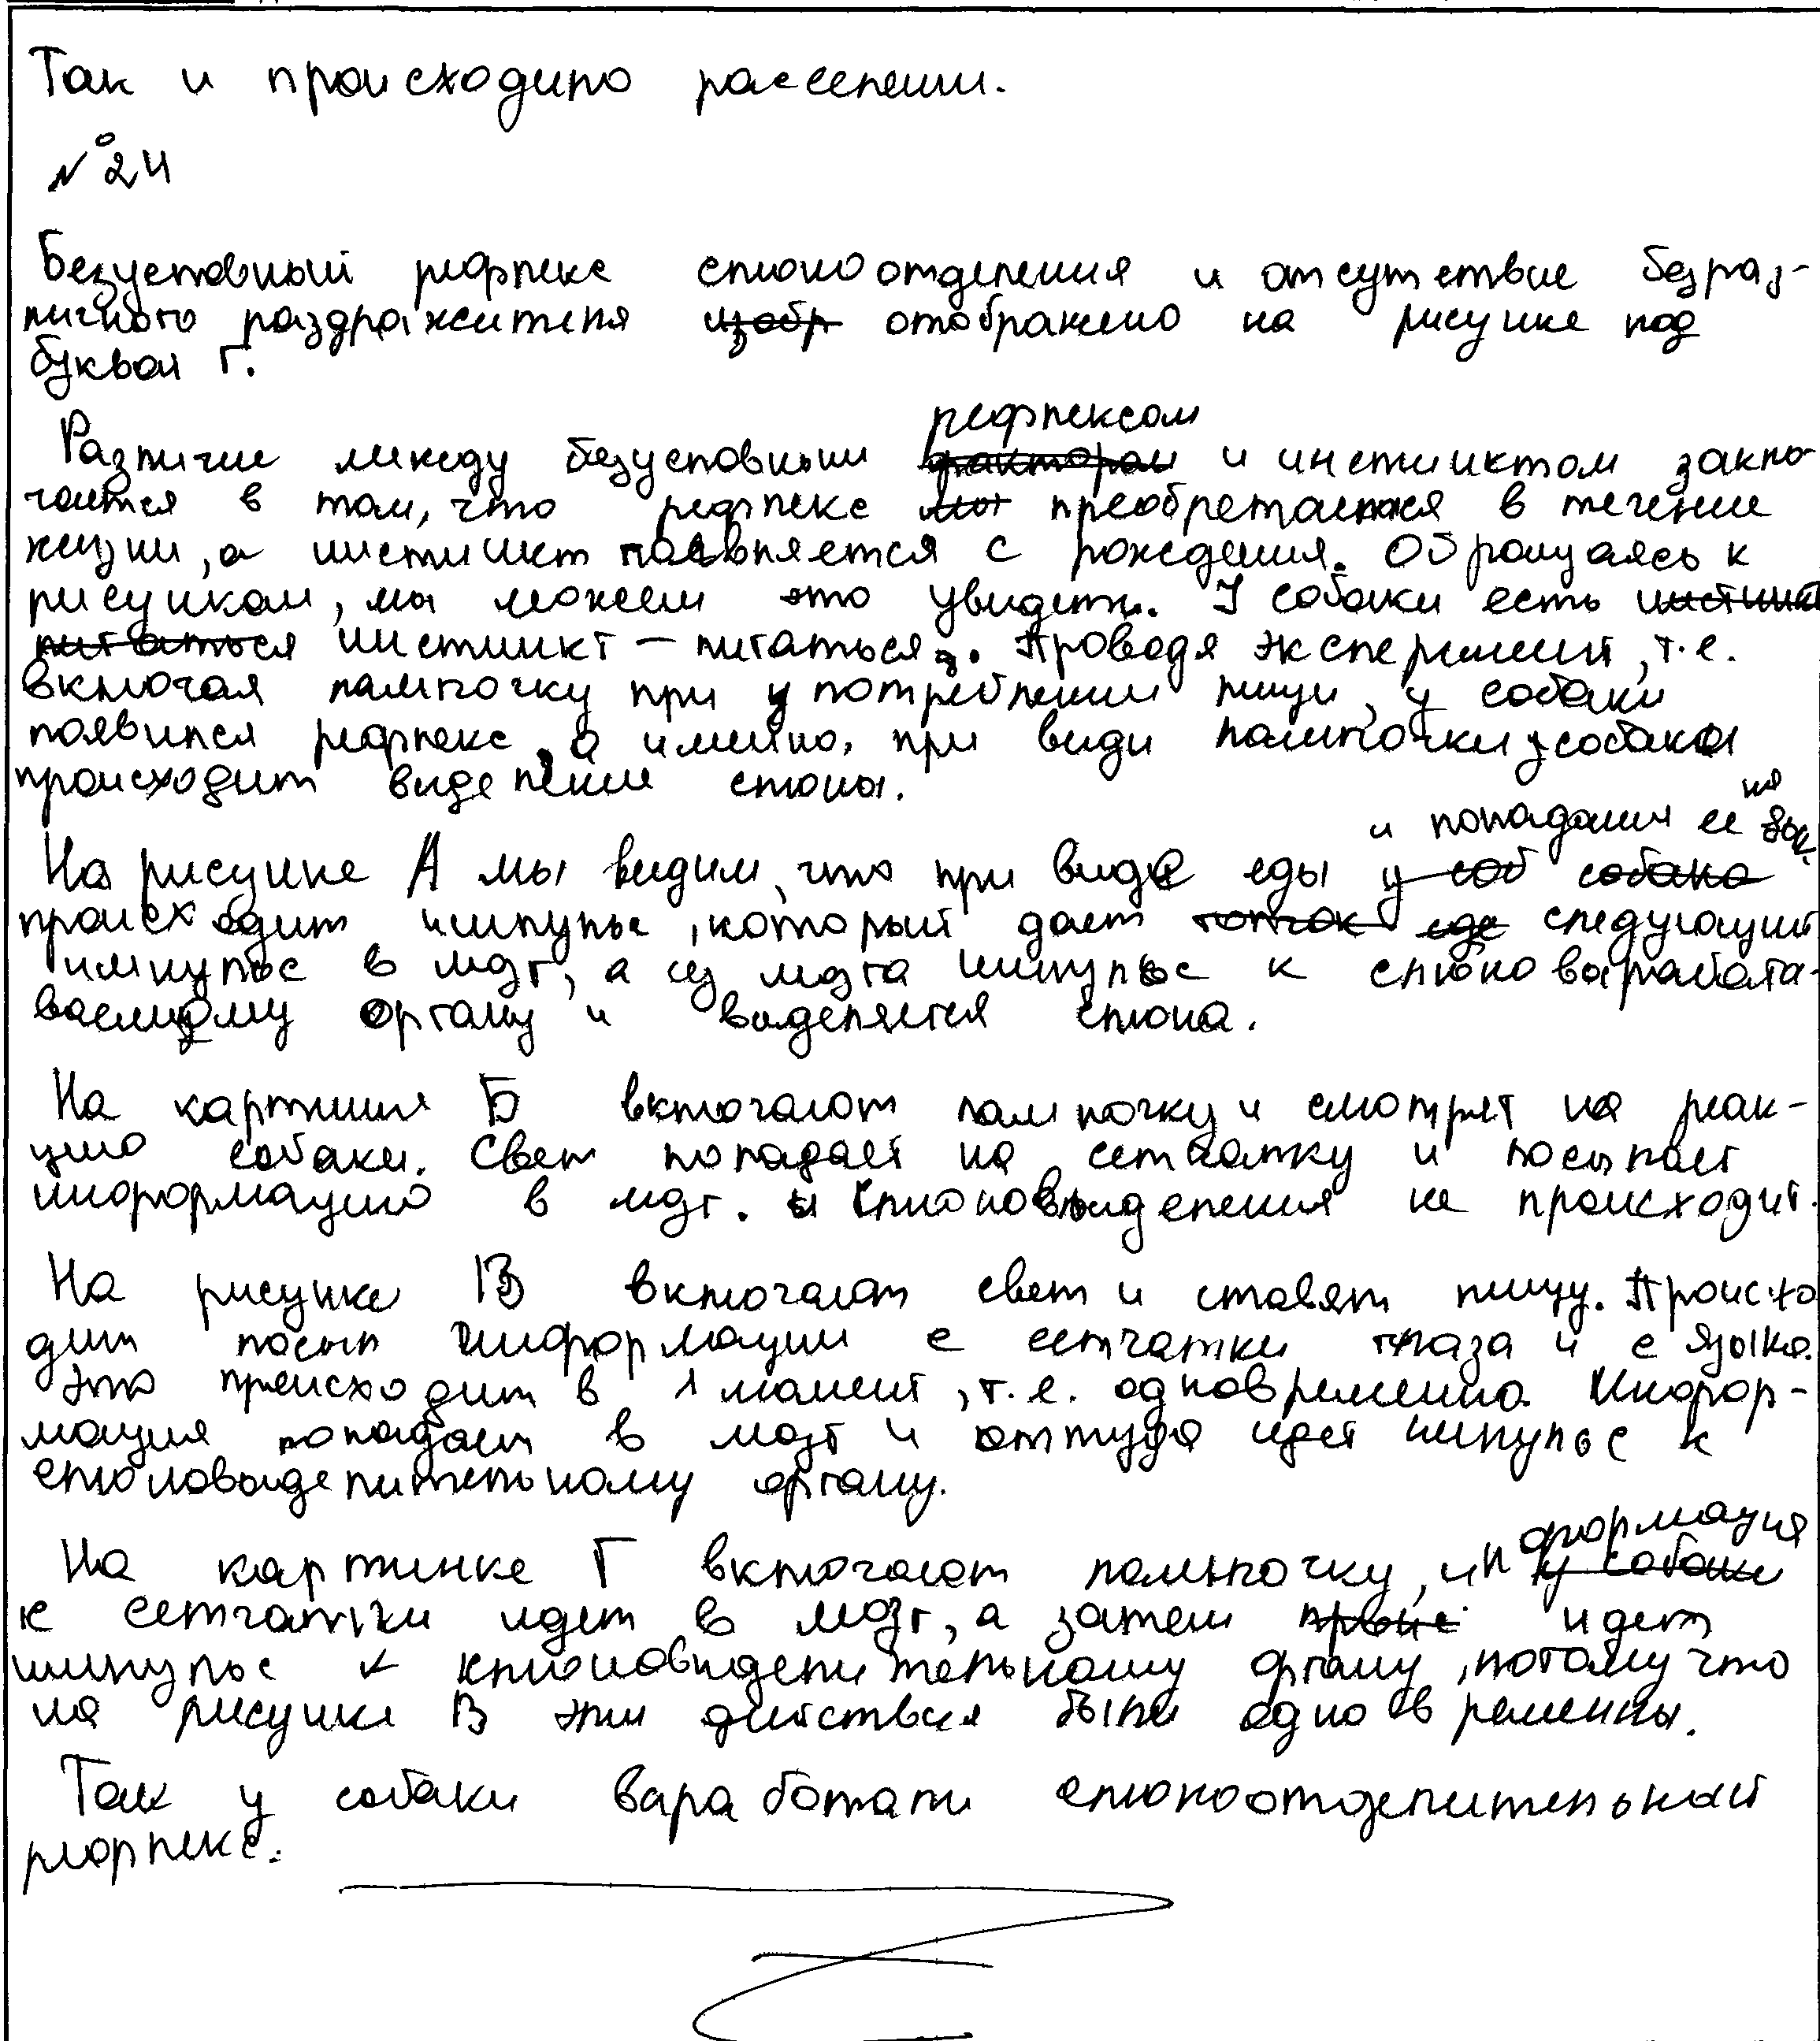 Так и происходило расселении.
№24
Безусловный рефлекс слюноотделения и отсутствие безраз-
личного раздражителя изобр отображено на рисунке под
буквой Г.
рефлексом
Различие между безусловным фактором и инстинктом заклю-
чается в том, что рефлекс преобретается в течение
жизни, а инстинкт появляется с рождения. Обращаясь к
рисункам, мы можем это увидеть. У собаки есть инстинкт
питаться инстинкт – питаться. Проводя эксперимент, т.е.
включая лампочку при употреблении пищи, у собаки
появился рефлекс, а именно, при види лампочки у собаки
происходит виделение слюны.
и попадания её на язык
На рисунке А мы видим, что при виде еды у соб собака
происходит импульс, который дает следующий
импульс в мозг, а из мозга импульс к слюновырабата-
ваемому органу и выделяется слюна.
На картинке Б включают лампочку и смотрят на реак-
цию собаки. Свет попадает на сетчатку и посылает
информацию в мозг. Слюновыделения не происходит.
На рисунке В включают свет и ставят пищу. Происхо
дит посыл информации с сетчатки глаза и с языка.
Это происходит в 1 момент, т.е. одновременно. Инфор-
мация попадает в мозг и оттуда идет импульс к
слюновыделительному органу.
На картинке Г включают лампочку, информация у собаки
с сетчатки идет в мозг, а затем идет
импульс к слюновиделительному органу, потому что
на рисунке В эти действия были одновременны.
Так у собаки вара ботали слюноотделительный
рефлекс.